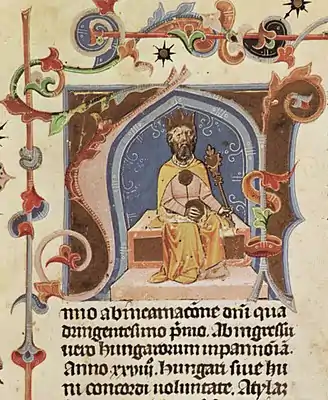 nno ab incarnacōne dn̄i qua
dringentesimo p̄mo. Ab ingressu
uero hungarorum in pannōiā.
Anno xxviiiͦ. Hungari siue hu
ni concordi uoluntate. Atylaʒ